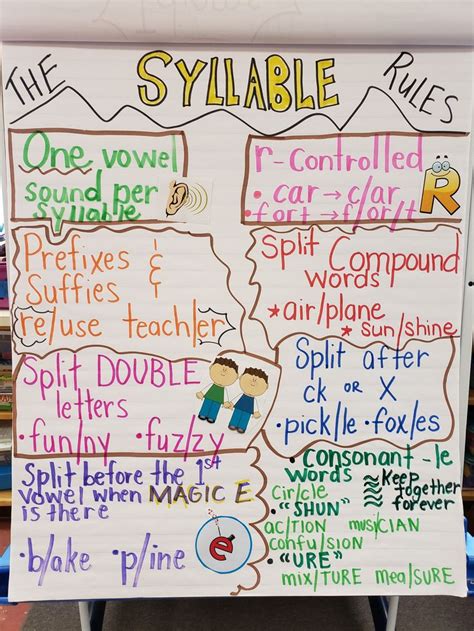 THE SYLLABLE RULES
One vowel
sound per
syllable
r-Controlled
• car → c/ar
• fort → f/or/t
R
Prefixes &
Suffies
re/use teach/er
Split Compound
words
★ air/plane
★ sun/shine
Split DOUBLE
letters
• fun/ny • fuz/zy
Split after
ck OR X
• pick/le • fox/es
Split before the 1st
vowel when MAGIC E
is there
• b/ake • p/ine
e
• Consonant -le
words
Cir/cle
Keep
together
forever
• "SHUN"
ac/TION musi/CIAN
confu/sion
• "URE"
mix/TURE mea/SURE